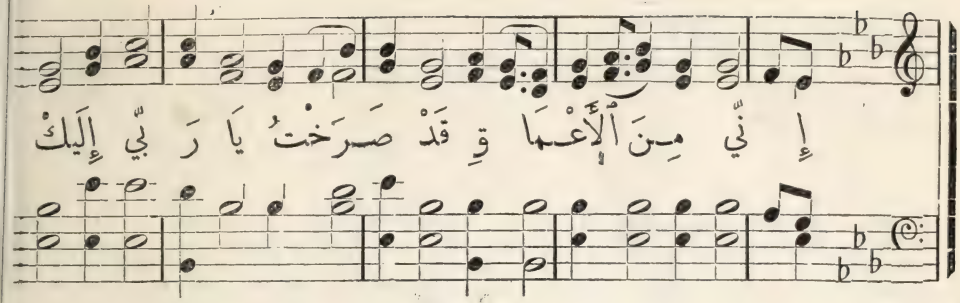 إِ نِّي مِـنَ ٱلْأَعْـمَا قِ قَدْ صَـرَخْتُ يَا رَ بِّي إِلَيكْ